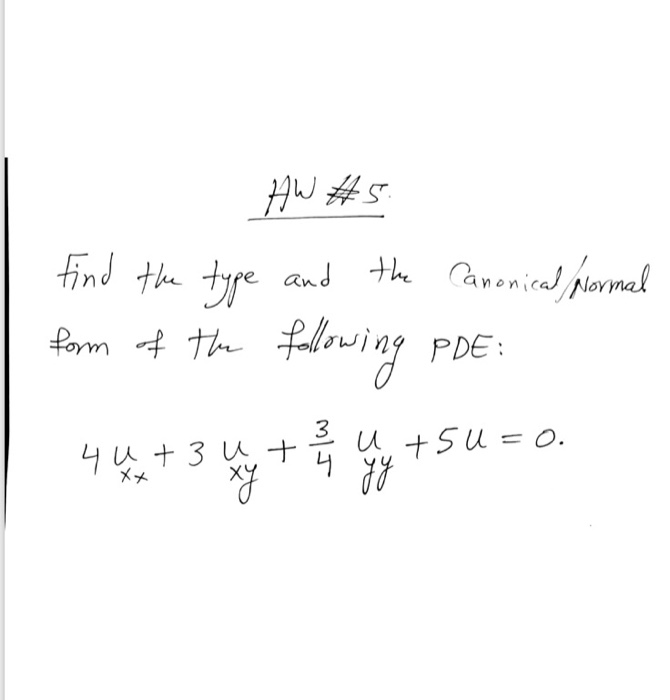 HW #5.
Find the type and the Canonical/Normal
form of the following PDE:
4u_xx + 3u_xy + 3/4 u_yy + 5u = 0.